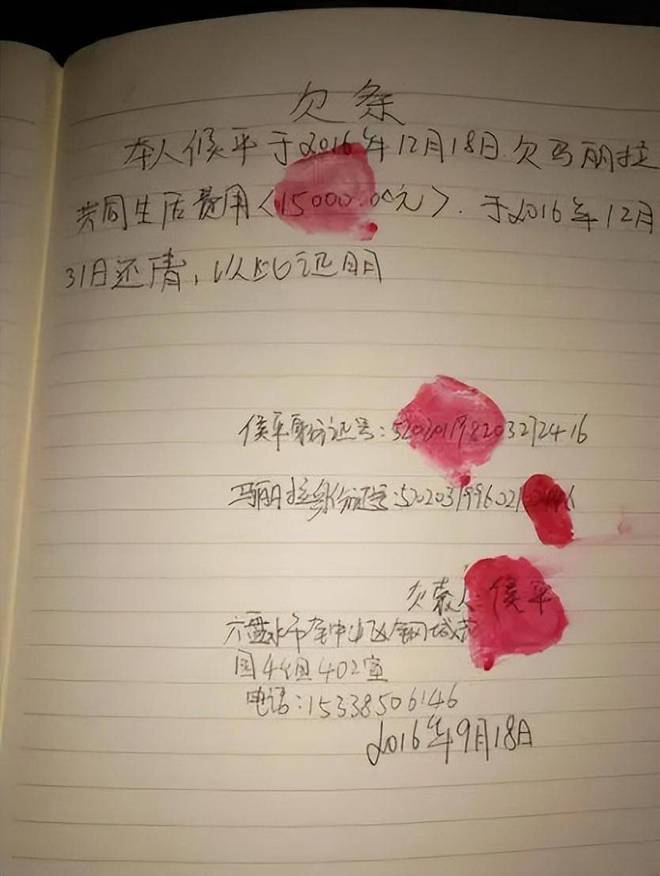 欠条
本人候平于2016年12月18日欠马丽拉
共同生活费用〈15000.00元〉.于2016年12月
31日还清,以此证明
侯平身份证号:520201198203272416
马丽拉身份证号:5202031996021
欠款人:侯平
六盘水市钟山区钢城花
园4组402室
电话:15338506146
2016年9月18日